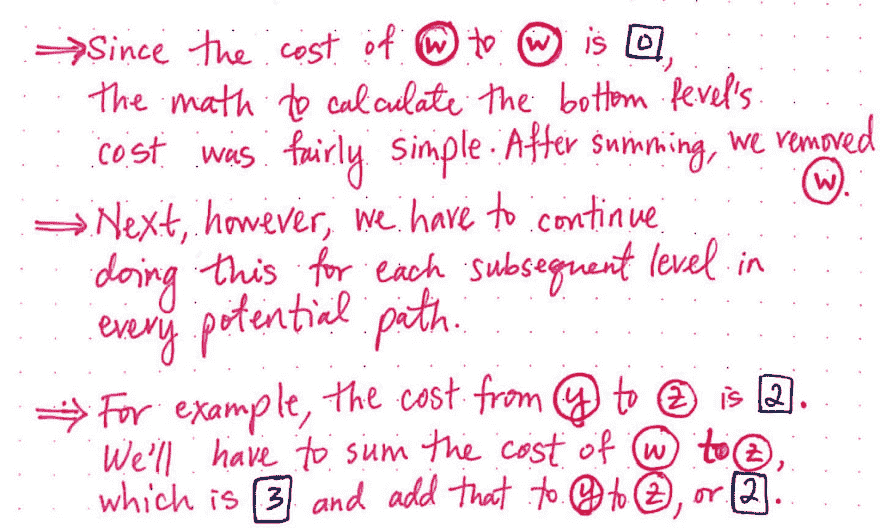 ⇒ Since the cost of w to w is 0,
the math to calculate the bottom level's
cost was fairly simple. After summing, we removed
w.
⇒ Next, however, we have to continue
doing this for each subsequent level in
every potential path.
⇒ For example, the cost from y to z is 2.
We'll have to sum the cost of w to z,
which is 3 and add that to y to z, or 2.